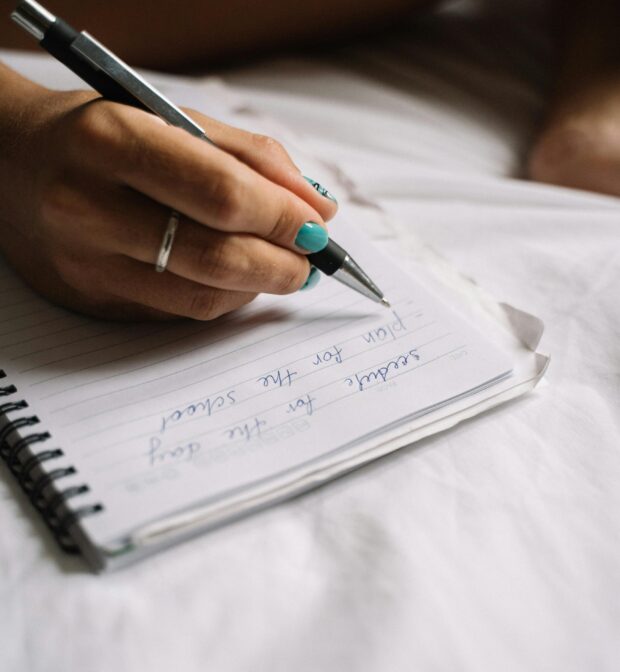 seedule for the day
plan for the school